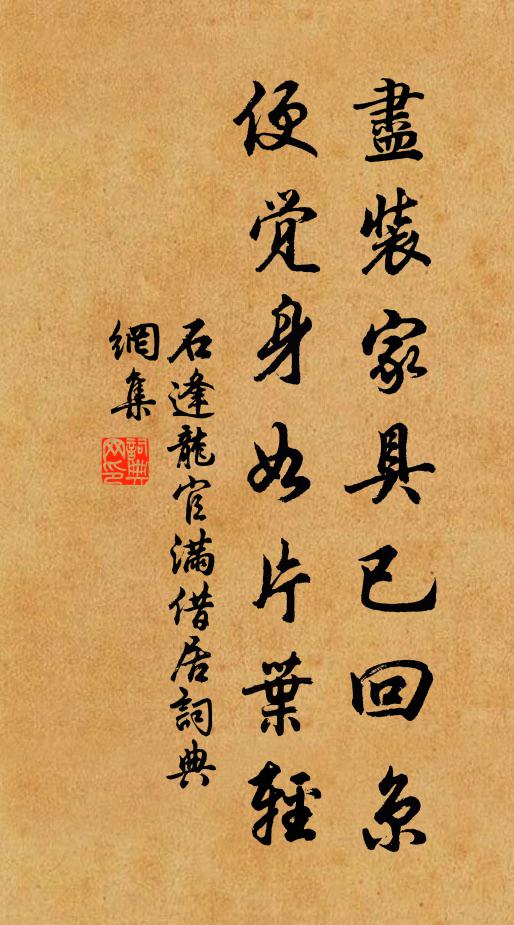 盡裝家具已回京
便覺身如片葉輕
石逢龍官滿借居詞典
網集
詞典
網印